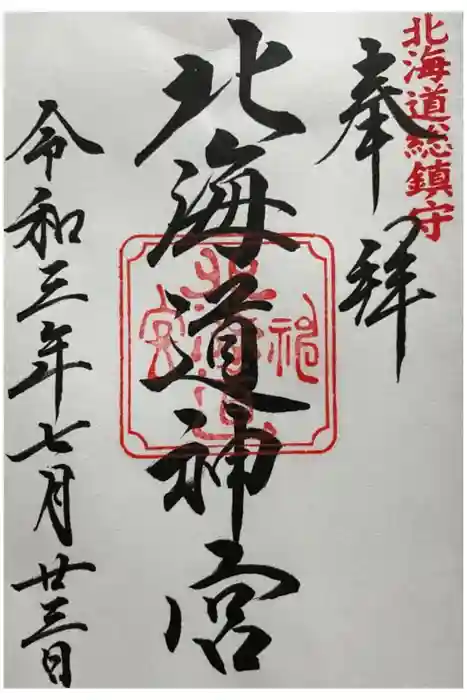 北海道総鎮守
奉拝
北海道神宮
北海道神宮
令和三年七月廿三日